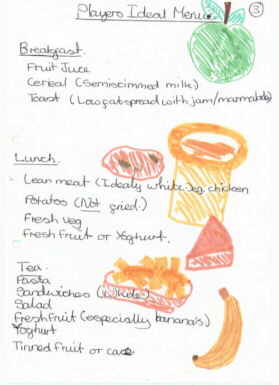 Players Ideal Menu.
3
Breakfast.
Fruit Juice
Cereal (Semiscimmed milk)
Toast (Low fat spread with jam/marmalade)
Lunch.
Lean meat (Idealy white eg, chicken
Potatoes (Not fried.)
Fresh veg
Fresh fruit or Yoghurt.
Tea.
Pasta
Sandwiches
Salad
Fresh fruit (especially banana's)
Yoghurt
Tinned fruit or cake